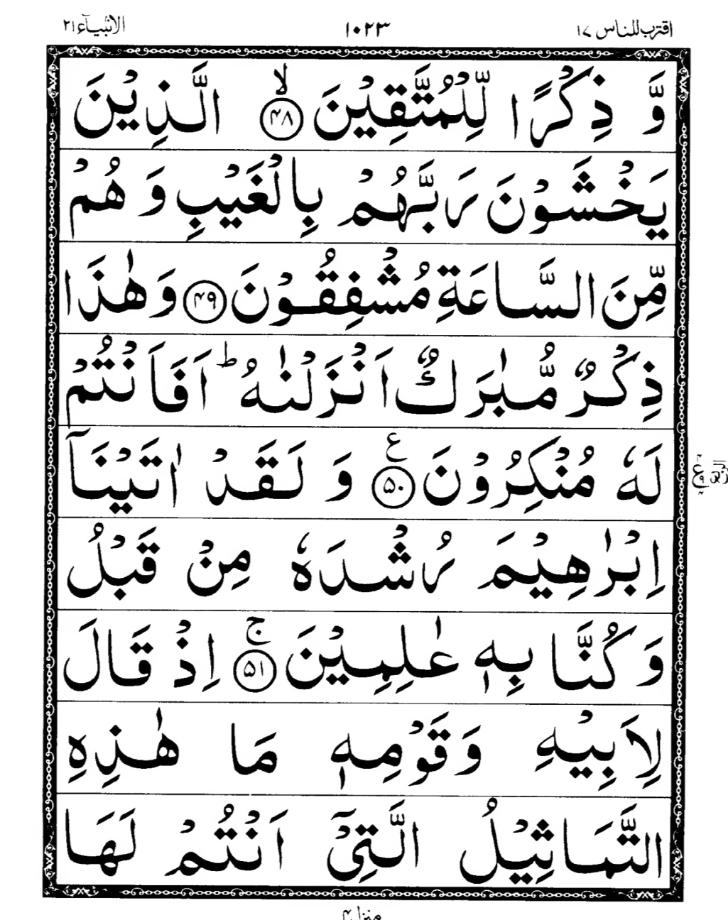 اقترب للناس ١٧ ١٠٢٣ الانبیآء ٢١
وَّ ذِكْرًا لِّلْمُتَّقِيْنَ ۙ﴿۴۸﴾ الَّذِيْنَ
يَخْشَوْنَ رَبَّهُمْ بِالْغَيْبِ وَ هُمْ
مِّنَ السَّاعَةِ مُشْفِقُوْنَ ﴿۴۹﴾ وَ هٰذَا
ذِكْرٌ مُّبٰرَكٌ اَنْزَلْنٰهُ ؕ اَفَاَنْتُمْ
لَهٗ مُنْكِرُوْنَ ﴿۵۰﴾ ع وَ لَقَدْ اٰتَيْنَاۤ
اِبْرٰهِيْمَ رُشْدَهٗ مِنْ قَبْلُ
وَ كُنَّا بِهٖ عٰلِمِيْنَ ۚ﴿۵۱﴾ اِذْ قَالَ
لِاَبِيْهِ وَ قَوْمِهٖ مَا هٰذِهِ
التَّمَاثِيْلُ الَّتِيْۤ اَنْتُمْ لَهَا
منزل ۴